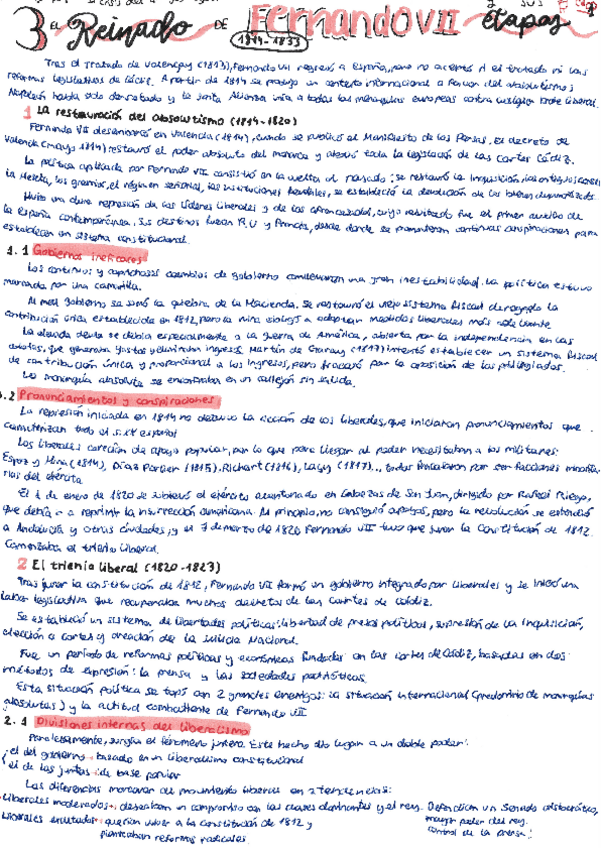 3 EL Reinado DE Fernando VII y sus etapas
1814-1833
Tras el Tratado de Valençay (1813), Fernando VII regresó a España, pero no aceptó ni el tratado ni las
reformas legislativas de Cádiz. A partir de 1814 se produjo un contexto internacional a favor del absolutismo;
Napoleón había sido derrotado y la Santa Alianza unía a todas las monarquías europeas contra cualquier brote liberal.
1 La restauración del absolutismo (1814-1820)
Fernando VII desembarcó en Valencia (1814), cuando se publicó el Manifiesto de los Persas. El decreto de
Valencia (mayo 1814) restauró el poder absoluto del monarca y abolió toda la legislación de las Cortes Cádiz.
La política aplicada por Fernando VII consistió en la vuelta al pasado; se restauró la Inquisición, los antiguos
la Mesta, los gremios, el régimen señorial, las instituciones y se estableció la devolución de los bienes
Hubo una dura represión de los líderes liberales y de los afrancesados, cuyo resultado fue el primer exilio de
la España contemporánea. Sus destinos fueron R.U y Francia, desde donde se promovieron continuas conspiraciones para
establecer un sistema constitucional.
1.1 Gobiernos ineficaces
Los continuos y caprichosos cambios de gobierno conllevaron una gran inestabilidad. La política estuvo
marcada por una camarilla.
Al mal gobierno se sumó la quiebra de la Hacienda. Se restauró el viejo sistema fiscal derogando la
contribución única establecida en 1812, pero la ruina obligó a adoptar medidas liberales más adelante
La elevada deuda se debía especialmente a la Guerra de América, abierta por la independencia en las
colonias, que generaba gastos y eliminaba ingresos. Martín de Garay (1817) intentó establecer un sistema fiscal
de contribución única y proporcional a los ingresos, pero fracasó por la oposición de los privilegiados.
La monarquía absoluta se encontraba en un callejón sin salida.
1.2 Pronunciamientos y conspiraciones
La represión iniciada en 1814 no detuvo la acción de los liberales, que iniciaron pronunciamientos que
caracterizan todo el s.XIX español
Los liberales carecían de apoyo popular, por lo que para llegar al poder necesitaban a los militares:
Espoz y Mina (1814), Díaz Porlier (1815), Richart (1816), Lacy (1817)... todos fracasaron por ser facciones minorita-
rias del ejército
El 1 de enero de 1820 se sublevó el ejército acantonado en Cabezas de San Juan, dirigido por Rafael Riego,
que debía ir a reprimir la insurrección americana. Al principio, no consiguió apoyos, pero la revolución se extendió
a Andalucía y otras ciudades, y el 7 de marzo de 1820 Fernando VII tuvo que jurar la Constitución de 1812.
Comenzaba el trienio liberal.
2 El trienio liberal (1820-1823)
Tras jurar la constitución de 1812, Fernando VII formó un gobierno integrado por liberales y se inició una
labor legislativa que recuperaba muchos decretos de las Cortes de Cádiz.
Se estableció un sistema de libertades políticas: libertad de presos políticos, supresión de la Inquisición,
elección a cortes y creación de la Milicia Nacional.
Fue un período de reformas políticas y económicas fundadas en las cortes de Cádiz, basadas en dos
métodos de expresión: la prensa y las sociedades patrióticas.
Esta situación política se topó con 2 grandes enemigos: la situación internacional (predominio de monarquías
absolutas) y la actitud combatiente de Fernando VII
2.1 Divisiones internas del liberalismo
Paralelamente, surgía el fenómeno juntero. Este hecho dio lugar a un doble poder:
el del gobierno: basado en un liberalismo constitucional
el de las juntas: de base popular
Las diferencias marcaron al movimiento liberal en 2 tendencias:
Liberales moderados: deseaban un compromiso con las clases dominantes y el rey. Defendían un Senado aristocrático,
mayor poder del rey.
control de la prensa.
Liberales exaltados: querían volver a la Constitución de 1812 y
planteaban reformas radicales.